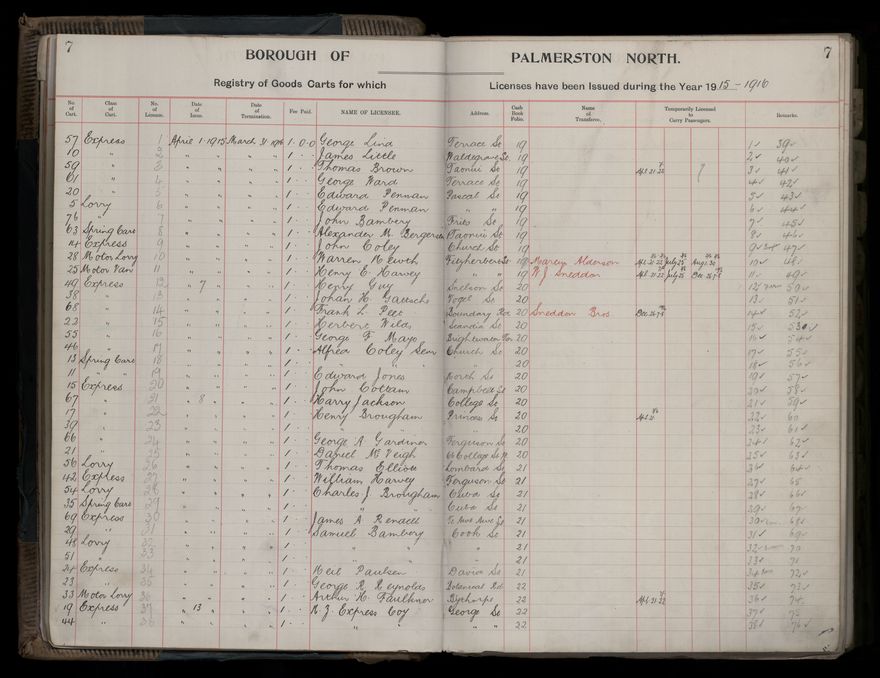 7 BOROUGH OF PALMERSTON NORTH. 7
Registry of Goods Carts for which Licenses have been Issued during the Year 1915-1916
No. of Cart. Class of Cart. No. of License. Date of Issue. Date of Termination. Fee Paid. NAME OF LICENSEE. Address. Cash Book Folio. Name of Transferee. Temporarily Licensed to Carry Passengers. Remarks.
57 Express 1 April 1 1915 March 31 1916 1 0 0 George Lind Terrace St 19 1 39
10 " 2 " " " " 1 James Little Waldegrave St 19 2 40
59 " 3 " " " " 1 Thomas Brown Taonui St 19 3 41
61 " 4 " " " " 1 George Ward Terrace St 19 4 42
20 " 5 " " " " 1 Edward Penman Pascal St 19 5 43
5 Lorry 6 " " " " 1 Edward Penman " " 19 6 44
76 " 7 " " " " 1 John Bambery 19 7 45
63 Spring Cart 8 " " " " 1 Alexander M. Bergersen Taonui St 19 8 46
14 Express 9 " " " " 1 John Coley Church St 19 9 47
28 Motor Lorry 10 " " " " 1 Warren Fitzherbert St 19 Alderson 10 48
25 Motor Van 11 " " " " 1 Henry E Harvey " " 19 W J Sneddon 11 49
49 Express 12 " 7 " " 1 Henry Guy Snelson St 20 12 50
38 " 13 " " " " 1 Johan H Vogel St 20 13 51
68 " 14 " " " " 1 Frank L Boundary Rd 20 Sneddon Bros 14 52
22 " 15 " " " " 1 Herbert Wilds Scandia St 20 15 53
55 " 16 " " " " 1 George F Mayo 20 16 54
46 " 17 " " " " 1 Alfred Coley Senr Church St 20 17 55
13 Spring Cart 18 " " " " 1 20 18 56
11 " 19 " " " " 1 Edward Jones North St 20 19 57
15 Express 20 " " " " 1 John Cottam Campbell St 20 20 58
67 " 21 " 8 " " 1 Harry Jackson College St 20 21 59
17 " 22 " " " " 1 Henry Brougham Princess St 20 22 60
39 " 23 " " " " 1 20 23 61
66 " 24 " " " " 1 George A Gardiner Ferguson St 20 24 62
21 " 25 " " " " 1 Daniel McVeigh College St 20 25 63
56 Lorry 26 " " " " 1 Thomas Elliott Lombard St 21 26 64
42 Express 27 " " " " 1 William Harvey Ferguson St 21 27 65
54 Lorry 28 " " " " 1 Charles J. Brougham Cuba St 21 28 66
35 Spring Cart 29 " " " " 1 Cuba St 21 29 67
69 Express 30 " " " " 1 James A Rendell Te Awe Awe St 21 30 68
29 " 31 " " " " 1 Samuel Bambery Cook St 21 31 69
48 Lorry 32 " " " " 1 " " 21 32 70
51 " 33 " " " " 1 21 33 71
24 Express 34 " " " " 1 Neil Paulsen Davis St 21 34 72
23 " 35 " " " " 1 George R Reynolds Botanical Rd 22 35 73
33 Motor Lorry 36 " " " " 1 Arthur C Faulkner 22 36 74
19 Express 37 " 13 " " 1 N Z Express Coy George St 22 37 75
44 " 38 " " " " 1 " " " 22 38 76